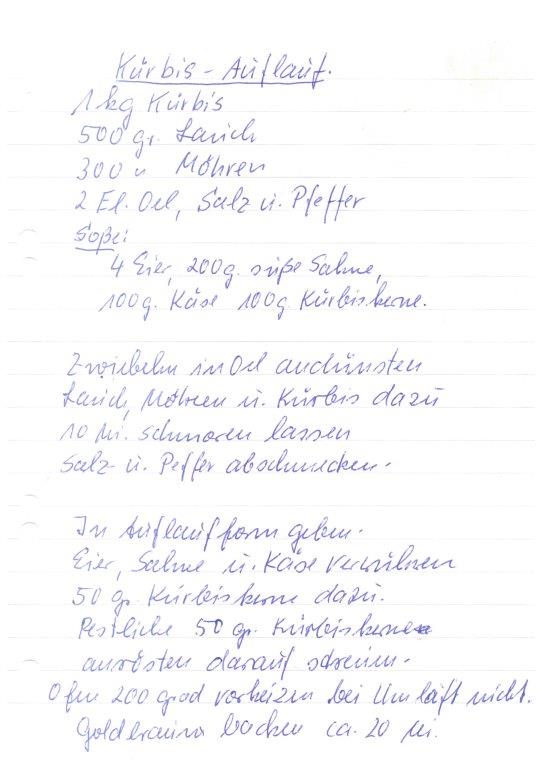 Kürbis-Auflauf.
1 kg Kürbis
500 gr. Lauch
300 " Möhren
2 El. Oel, Salz u. Pfeffer
Soße:
4 Eier, 200g. süße Sahne,
100g. Käse 100g Kürbiskerne.
Zwiebeln in Oel andünsten
Lauch, Möhren u. Kürbis dazu
10 Mi. schmoren lassen
Salz u. Peffer abschmecken.
In Auflaufform geben.
Eier, Sahne u. Käse verrühren
50 gr. Kürbiskerne dazu.
Restliche 50 gr. Kürbiskerne
anrösten darauf streuen.
Ofen 200 grad vorheizen bei Umluft nicht.
Goldbraun backen ca. 20 Mi.